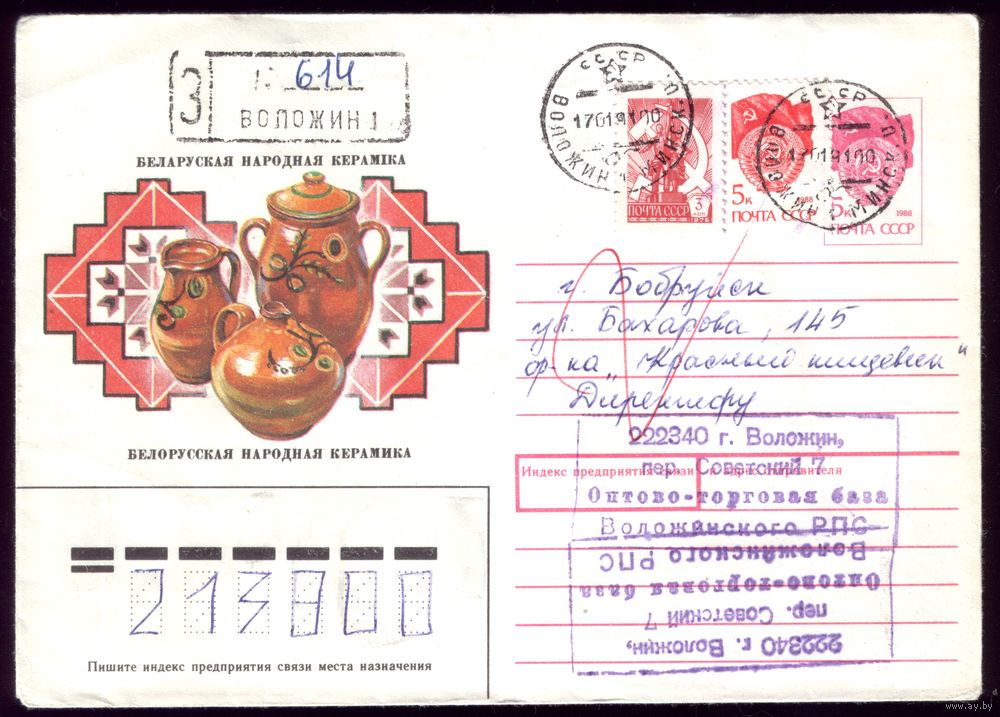 З
№ 614
ВОЛОЖИН 1
БЕЛАРУСКАЯ НАРОДНАЯ КЕРАМІКА
БЕЛОРУССКАЯ НАРОДНАЯ КЕРАМИКА
СССР
ВОЛОЖИН МИНСК.
17019100
3 КОП
ПОЧТА СССР
1976
5к 1988
ПОЧТА СССР
СССР
ВОЛОЖИН МИНСК.
17019100
5к 1988
ПОЧТА СССР
г. Бобруйск
ул. Бахарова, 145
ф-ка „Красный пищевик"
Директору
Индекс предприятия связи и адрес отправителя
222340 г. Воложин,
пер. Советский 7
Оптово-торговая база
Воложинского РПС
Воложинского РПС
Оптово-торговая база
пер. Советский 7
222340 г. Воложин,
213800
Пишите индекс предприятия связи места назначения
www.ay.by